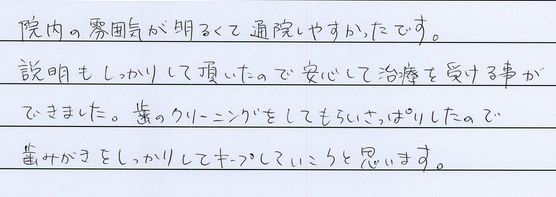 院内の雰囲気が明るくて通院しやすかったです。
説明もしっかりして頂いたので安心して治療を受ける事が
できました。歯のクリーニングをしてもらいさっぱりしたので
歯みがきをしっかりしてキープしていこうと思います。